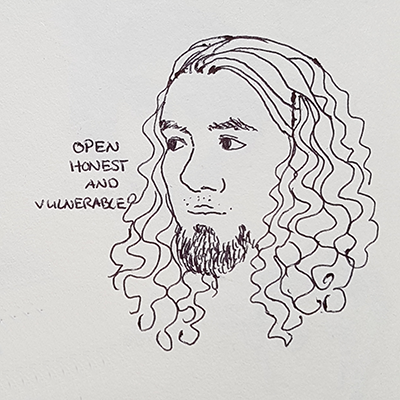 OPEN
HONEST
AND
VULNERABLE?